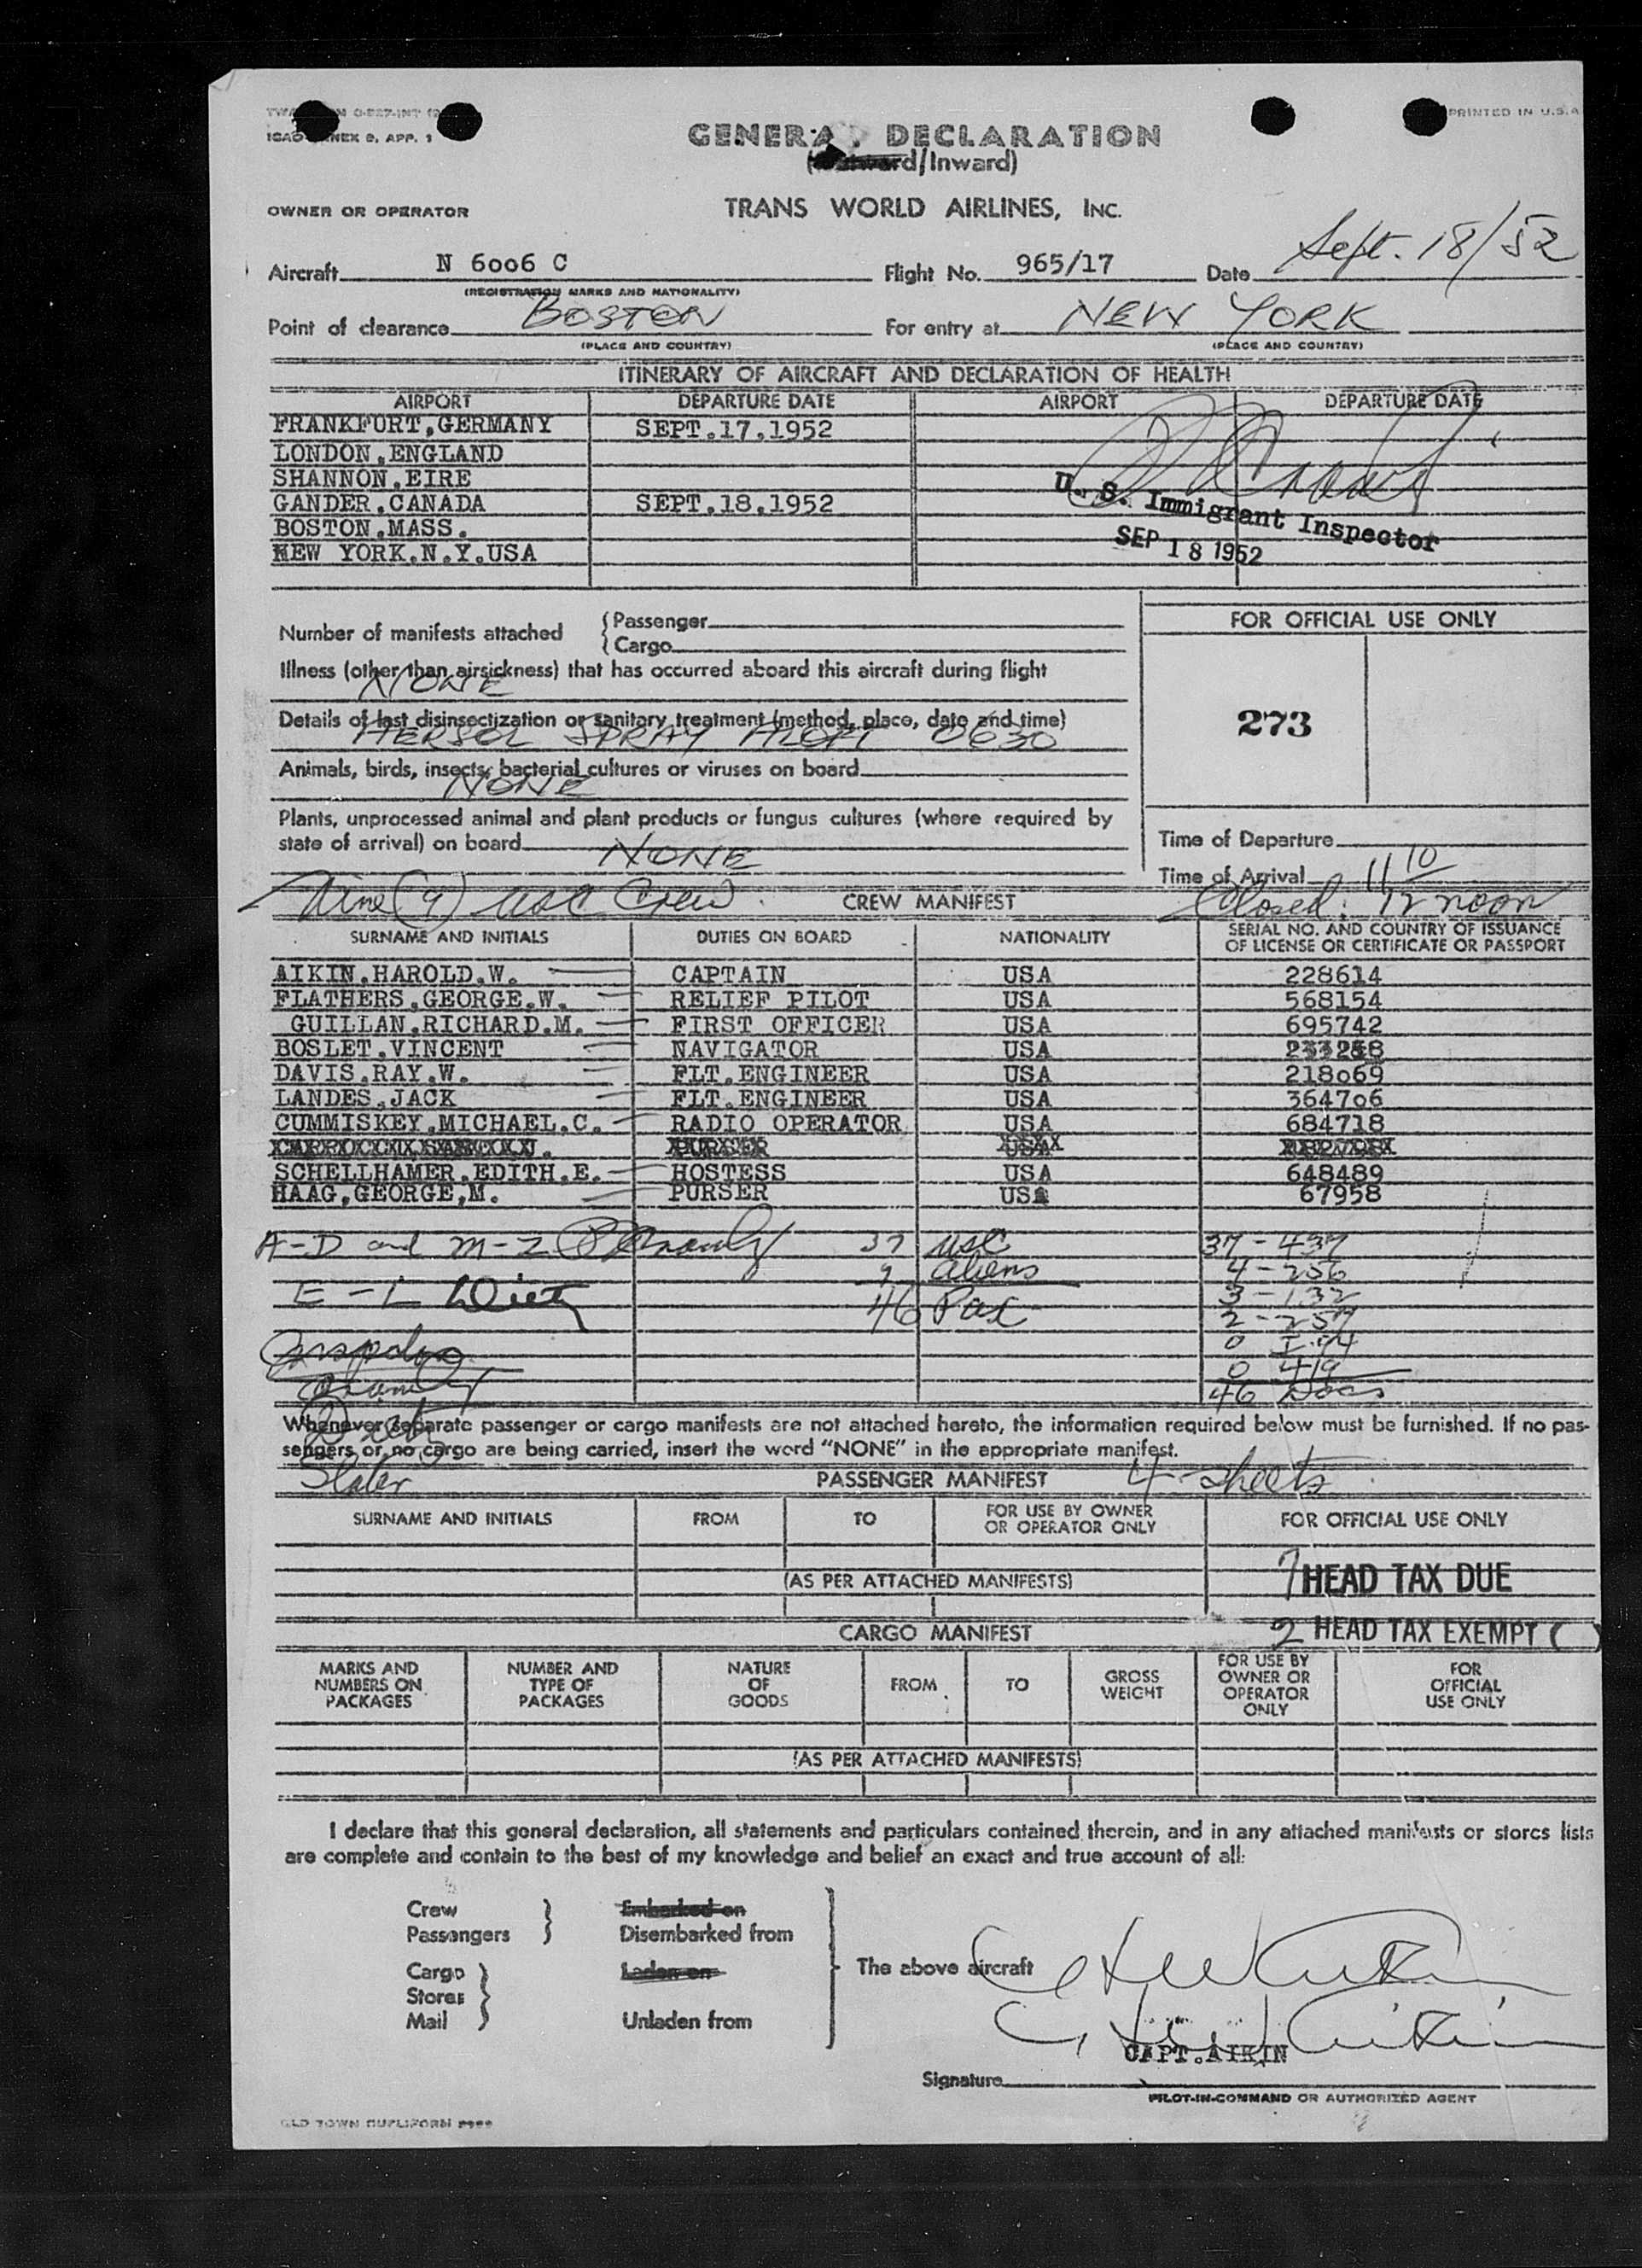 PRINTED IN U.S.A
ICAO ANNEX 9, APP. 1
GENERAL DECLARATION
(Outward/Inward)
OWNER OR OPERATOR TRANS WORLD AIRLINES, INC.
Aircraft N 6006 C Flight No. 965/17 Date Sept. 18/52
(REGISTRATION MARKS AND NATIONALITY)
Point of clearance BOSTON For entry at NEW YORK
(PLACE AND COUNTRY) (PLACE AND COUNTRY)
ITINERARY OF AIRCRAFT AND DECLARATION OF HEALTH
AIRPORT DEPARTURE DATE AIRPORT DEPARTURE DATE
FRANKFURT,GERMANY SEPT.17.1952
LONDON,ENGLAND
SHANNON,EIRE
GANDER,CANADA SEPT.18.1952
BOSTON.MASS.
NEW YORK.N.Y.USA
U. S. Immigrant Inspector
SEP 18 1952
Number of manifests attached { Passenger
{ Cargo
FOR OFFICIAL USE ONLY
Illness (other than airsickness) that has occurred aboard this aircraft during flight
NONE
Details of last disinsectization or sanitary treatment (method, place, date and time)
SPRAY 0630
273
Animals, birds, insects, bacterial cultures or viruses on board
NONE
Plants, unprocessed animal and plant products or fungus cultures (where required by
state of arrival) on board NONE
Time of Departure
Time of Arrival 11 10
Nine (9) USC Crew. CREW MANIFEST Closed: 12 noon
SURNAME AND INITIALS DUTIES ON BOARD NATIONALITY SERIAL NO. AND COUNTRY OF ISSUANCE
OF LICENSE OR CERTIFICATE OR PASSPORT
AIKIN,HAROLD.W. CAPTAIN USA 228614
FLATHERS,GEORGE.W. RELIEF PILOT USA 568154
GUILLAN.RICHARD.M. FIRST OFFICER USA 695742
BOSLET.VINCENT NAVIGATOR USA
DAVIS.RAY.W. FLT.ENGINEER USA 218069
LANDES,JACK FLT.ENGINEER USA 364706
CUMMISKEY,MICHAEL.C. RADIO OPERATOR USA 684718
PURSER USA
SCHELLHAMER,EDITH.E. HOSTESS USA 648489
HAAG,GEORGE,M. PURSER USA 67958
A-D and M-Z 37 USC 37 - 439
9 aliens 4 - 256
E - L Dietz 3 - 132
46 Pax 2 - 257
0 I-94
0 419
46 Docs
Whenever separate passenger or cargo manifests are not attached hereto, the information required below must be furnished. If no pas-
sengers or no cargo are being carried, insert the word "NONE" in the appropriate manifest.
Slater PASSENGER MANIFEST 4 - sheets
SURNAME AND INITIALS FROM TO FOR USE BY OWNER
OR OPERATOR ONLY FOR OFFICIAL USE ONLY
(AS PER ATTACHED MANIFESTS)
7 HEAD TAX DUE
2 HEAD TAX EXEMPT ( )
CARGO MANIFEST
MARKS AND
NUMBERS ON
PACKAGES NUMBER AND
TYPE OF
PACKAGES NATURE
OF
GOODS FROM TO GROSS
WEIGHT FOR USE BY
OWNER OR
OPERATOR
ONLY FOR
OFFICIAL
USE ONLY
(AS PER ATTACHED MANIFESTS)
I declare that this general declaration, all statements and particulars contained therein, and in any attached manifests or stores lists
are complete and contain to the best of my knowledge and belief an exact and true account of all:
Crew } Embarked on
Passengers } Disembarked from
Cargo } Laden on The above aircraft
Stores
Mail } Unladen from
CAPT.AIKIN
Signature
PILOT-IN-COMMAND OR AUTHORIZED AGENT
OLD TOWN DUPLIFORM